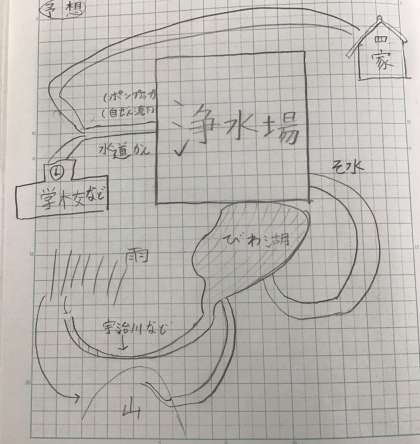 予想
家
(ポンプ
(自ぜん流下
浄水場
水道かん
学校など
そ水
びわ湖
雨
宇治川など
山